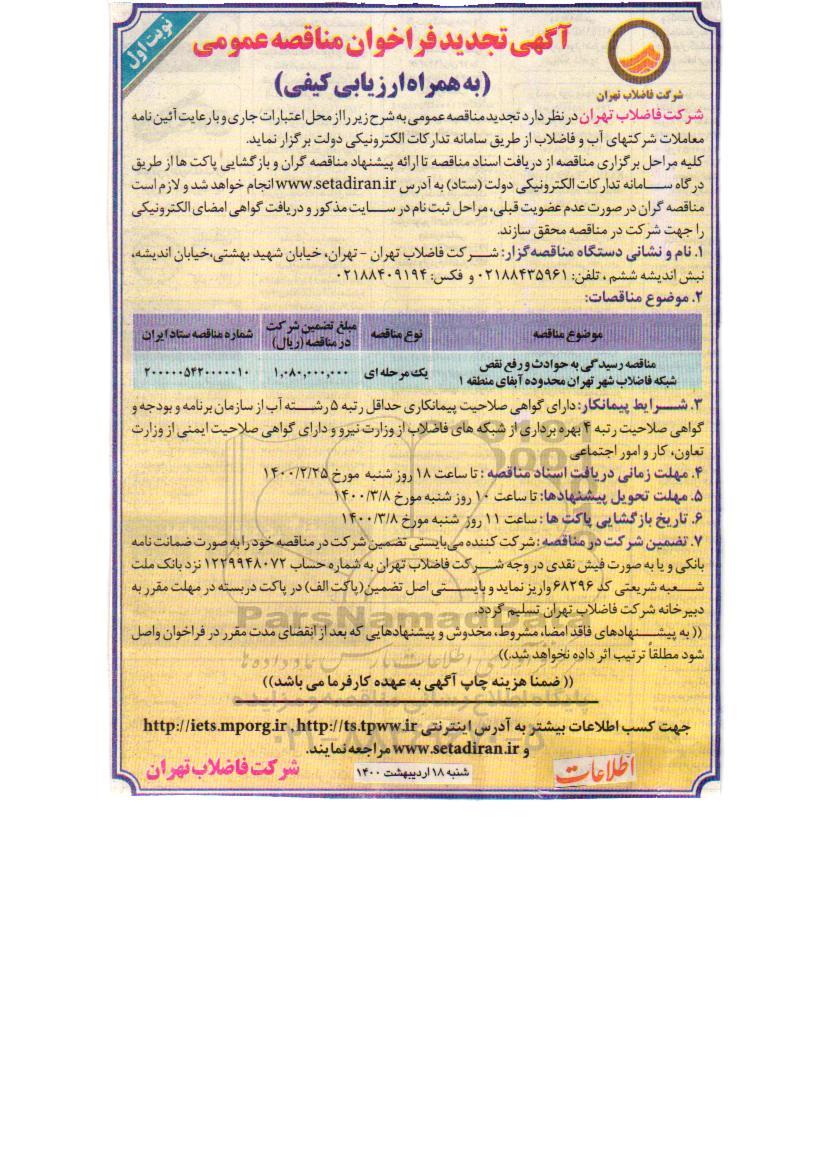 نوبت اول
آگهی تجدید فراخوان مناقصه عمومی
(به همراه ارزیابی کیفی)
شرکت فاضلاب تهران
شرکت فاضلاب تهران در نظر دارد تجدید مناقصه عمومی به شرح زیر را از محل اعتبارات جاری و با رعایت آئین نامه
معاملات شرکتهای آب و فاضلاب از طریق سامانه تدارکات الکترونیکی دولت برگزار نماید.
کلیه مراحل برگزاری مناقصه از دریافت اسناد مناقصه تا ارائه پیشنهاد مناقصه گران و بازگشایی پاکت ها از طریق
درگاه سامانه تدارکات الکترونیکی دولت (ستاد) به آدرس www.setadiran.ir انجام خواهد شد و لازم است
مناقصه گران در صورت عدم عضویت قبلی، مراحل ثبت نام در سایت مذکور و دریافت گواهی امضای الکترونیکی
را جهت شرکت در مناقصه محقق سازند.
۱. نام و نشانی دستگاه مناقصه‌گزار: شرکت فاضلاب تهران - تهران، خیابان شهید بهشتی،خیابان اندیشه،
نبش اندیشه ششم ، تلفن: ۰۲۱۸۸۴۳۵۹۶۱ و فکس: ۰۲۱۸۸۴۰۹۱۹۴
۲. موضوع مناقصات:
موضوع مناقصه نوع مناقصه مبلغ تضمین شرکت در مناقصه (ریال) شماره مناقصه ستاد ایران
مناقصه رسیدگی به حوادث و رفع نقص
شبکه فاضلاب شهر تهران محدوده آبفای منطقه ۱ یک مرحله ای ۱,۰۸۰,۰۰۰,۰۰۰ ۲۰۰۰۰۰۵۴۲۰۰۰۰۰۱۰
۳. شرایط پیمانکار: دارای گواهی صلاحیت پیمانکاری حداقل رتبه ۵ رشته آب از سازمان برنامه و بودجه و
گواهی صلاحیت رتبه ۴ بهره برداری از شبکه های فاضلاب از وزارت نیرو و دارای گواهی صلاحیت ایمنی از وزارت
تعاون، کار و امور اجتماعی
۴. مهلت زمانی دریافت اسناد مناقصه : تا ساعت ۱۸ روز شنبه مورخ ۱۴۰۰/۲/۲۵
۵. مهلت تحویل پیشنهادها: تا ساعت ۱۰ روز شنبه مورخ ۱۴۰۰/۳/۸
۶. تاریخ بازگشایی پاکت ها : ساعت ۱۱ روز شنبه مورخ ۱۴۰۰/۳/۸
۷. تضمین شرکت در مناقصه : شرکت کننده می‌بایستی تضمین شرکت در مناقصه خود را به صورت ضمانت نامه
بانکی و یا به صورت فیش نقدی در وجه شرکت فاضلاب تهران به شماره حساب ۱۲۲۹۹۴۸۰۷۲ نزد بانک ملت
شعبه شریعتی کد ۶۸۲۹۶ واریز نماید و بایستی اصل تضمین (پاکت الف) در پاکت دربسته در مهلت مقرر به
دبیرخانه شرکت فاضلاب تهران تسلیم گردد.
(( به پیشنهادهای فاقد امضا، مشروط، مخدوش و پیشنهادهایی که بعد از انقضای مدت مقرر در فراخوان واصل
شود مطلقاً ترتیب اثر داده نخواهد شد.))
(( ضمنا هزینه چاپ آگهی به عهده کارفرما می باشد))
جهت کسب اطلاعات بیشتر به آدرس اینترنتی http://iets.mporg.ir ,http://ts.tpww.ir
و www.setadiran.ir مراجعه نمایند.
اطلاعات
شنبه ۱۸ اردیبهشت ۱۴۰۰
شرکت فاضلاب تهران
ParsNamadData